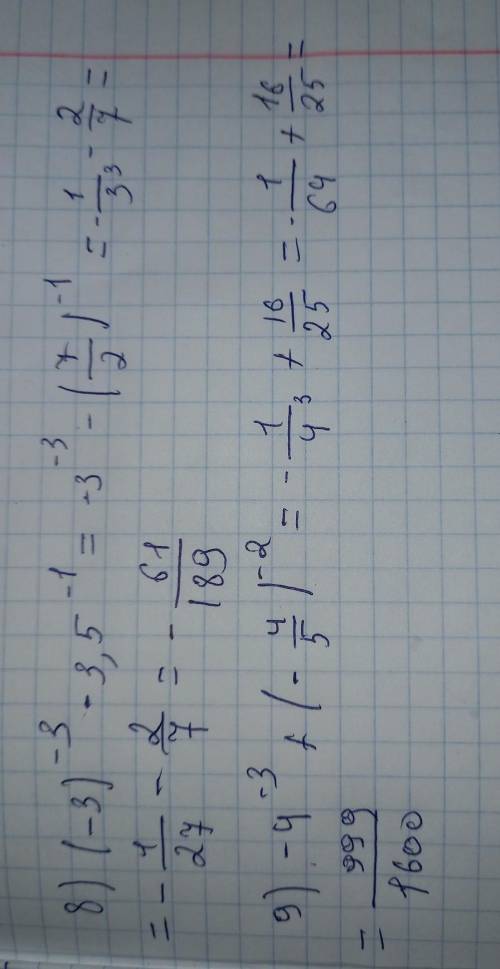 8) (-3)^-3 - 3,5^-1 = -3^-3 - (7/2)^-1 = -1/3^3 - 2/7 =
= -1/27 - 2/7 = -61/189
9) -4^-3 + (-4/5)^-2 = -1/4^3 + 16/25 = -1/64 + 16/25 =
= 999/1600